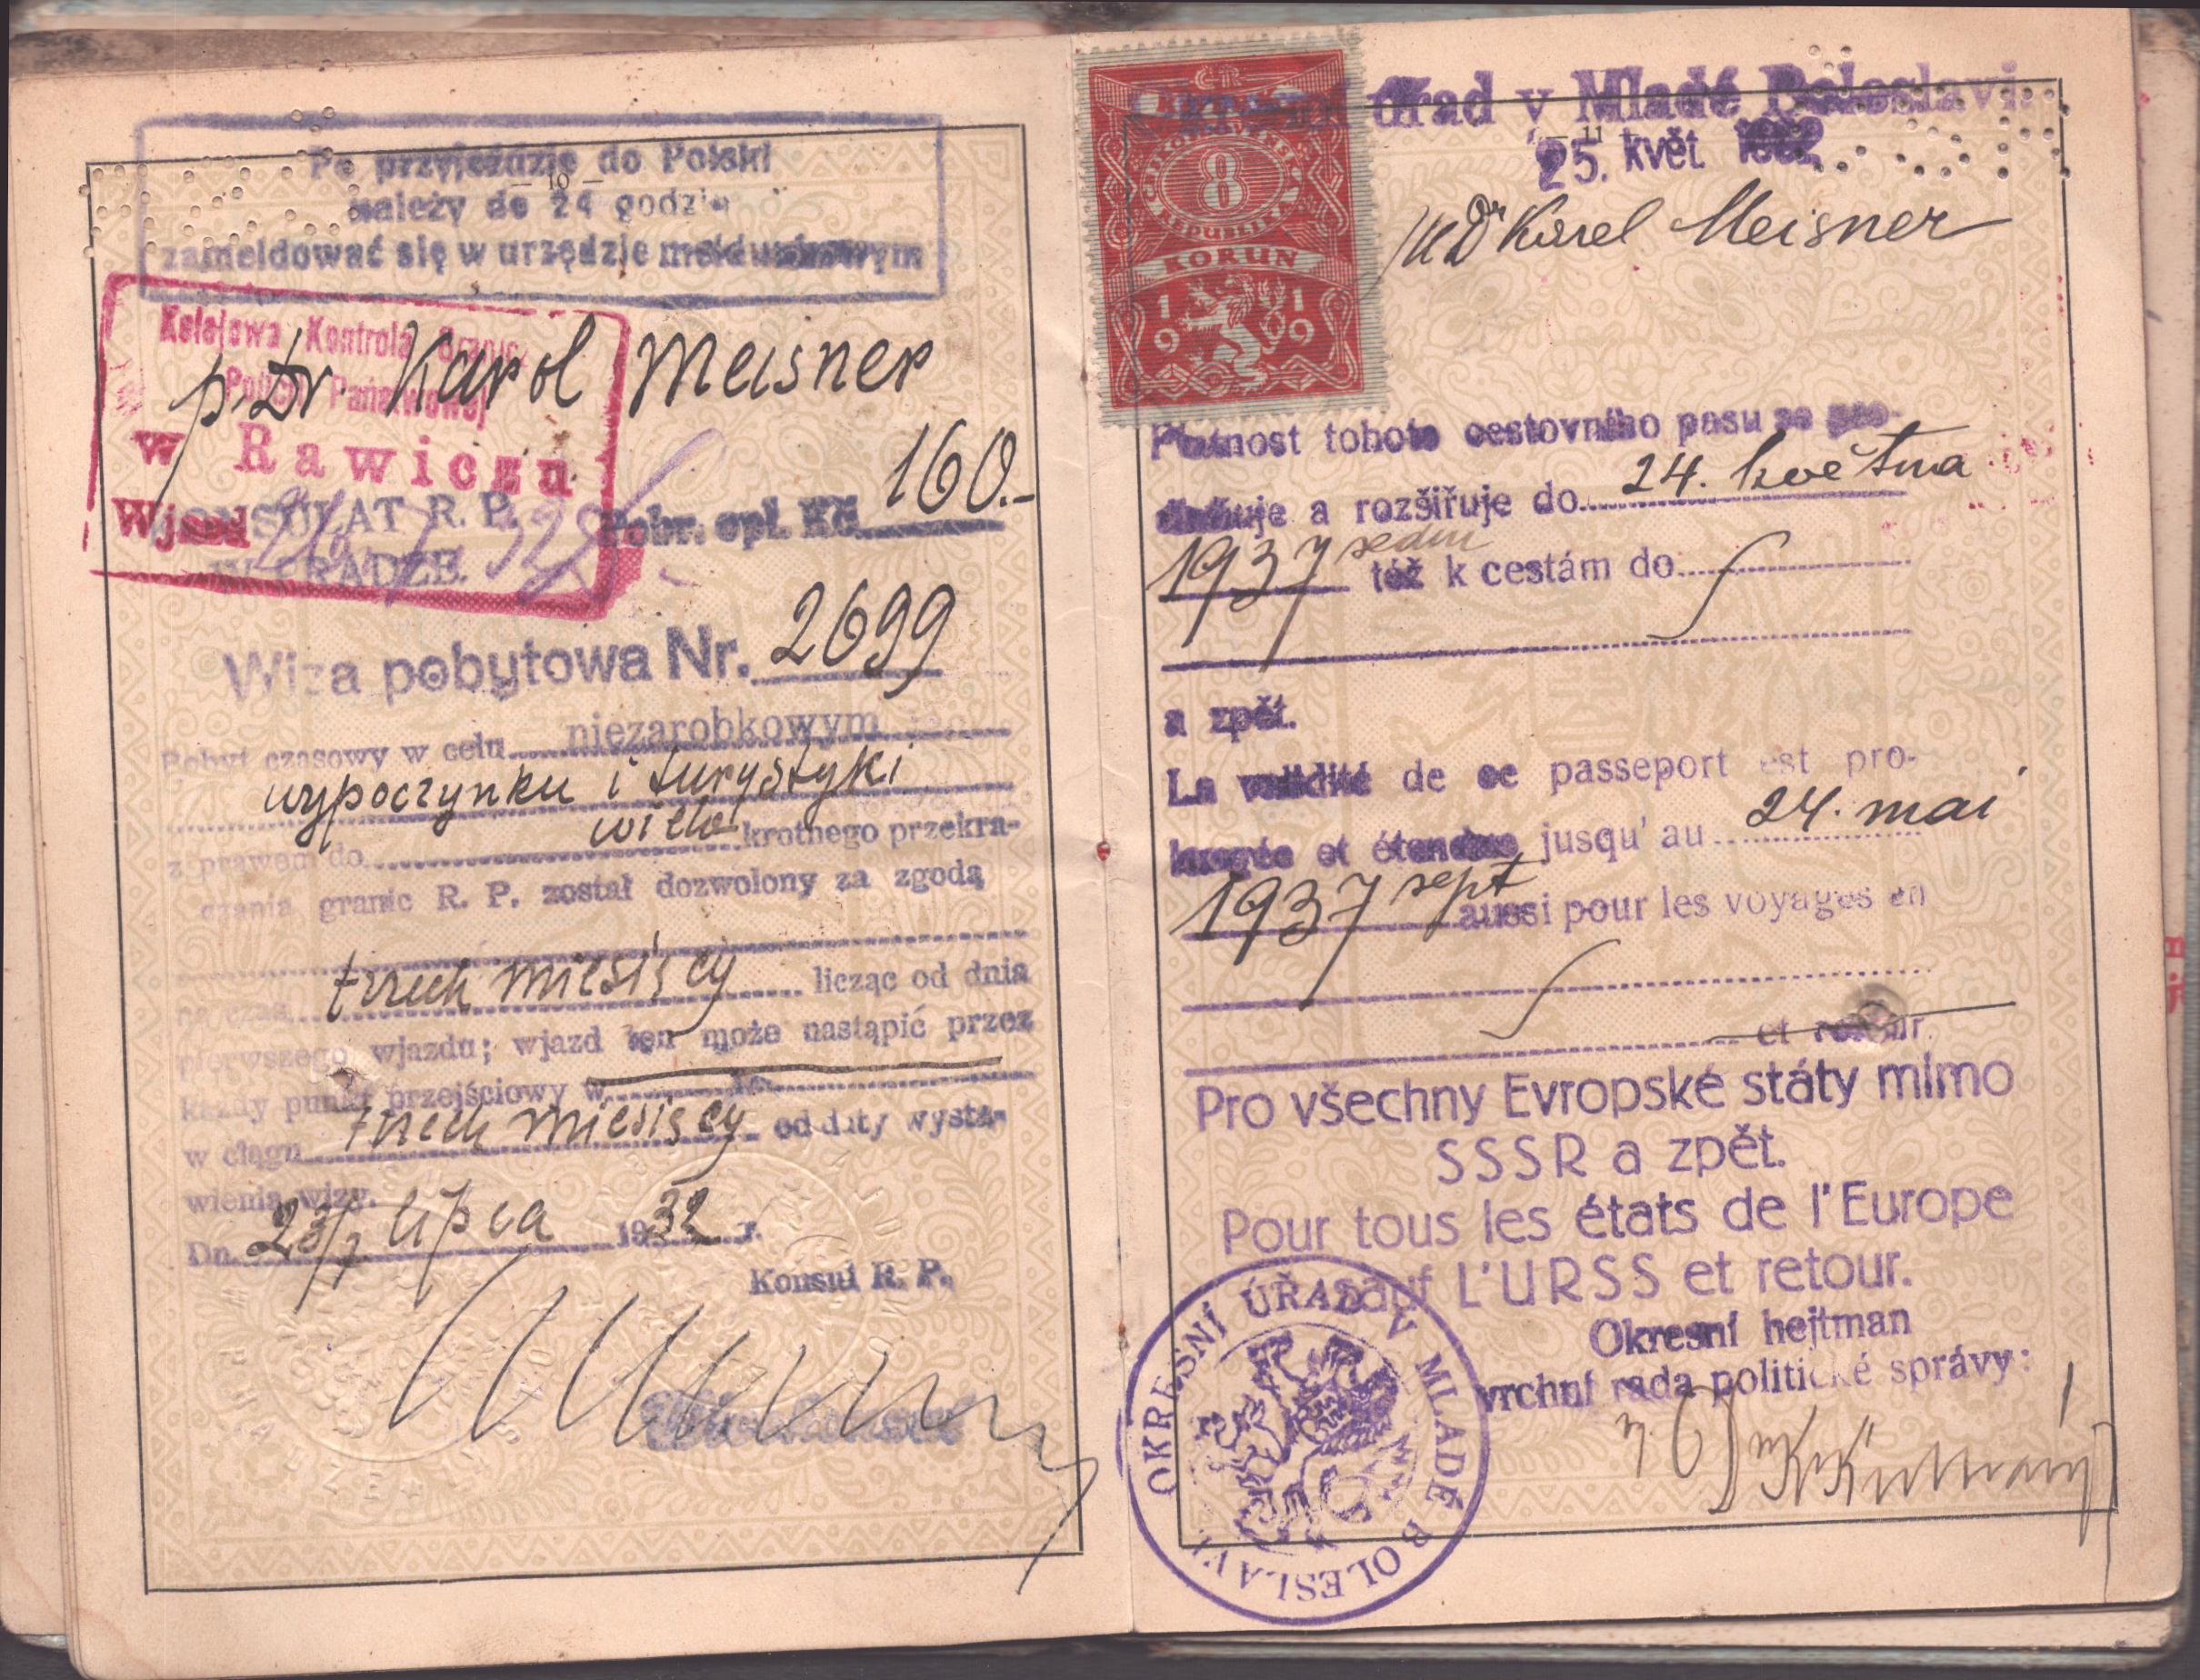 Po przyjeździe do Polski
— 10 —
należy do 24 godzin
zameldować się w urzędzie meldunkowym
Kolejowa Kontrola Granicz.
Policji Państwowej
p. Dr Karol Meisner
w Rawiczu
160.-
Wjazd
KONSULAT R. P.
W PRADZE.
Pobr. opł. Kč
Wiza pobytowa Nr. 2699
Pobyt czasowy w celu niezarobkowym
wypoczynku i turystyki
z prawem do wielo krotnego przekra-
czania granic R. P. został dozwolony za zgodą
na czas trzech miesięcy licząc od dnia
pierwszego wjazdu; wjazd ten może nastąpić przez
każdy punkt przejściowy w
w ciągu trzech miesięcy od daty wysta-
wienia wizy.
Dn. 23/7 lipca 1932 r.
Konsul R. P.
úřad v Mladé Boleslavi.
— 11 —
25. květ. 1932
MUDr Karel Meisner
ČESKOSLOVENSKÁ
8
REPUBLIKA
KORUN
19 19
Platnost tohoto cestovního pasu se pro-
dlužuje a rozšiřuje do 24. května
1937 sedm též k cestám do
a zpět.
La validité de ce passeport est pro-
longée et étendue jusqu' au 24. mai
1937 sept aussi pour les voyages en
et retour.
Pro všechny Evropské státy mimo
SSSR a zpět.
Pour tous les états de l'Europe
sauf L'URSS et retour.
Okresní hejtman
vrchní rada politické správy:
OKRESNÍ ÚŘAD V MLADÉ BOLESLAVI